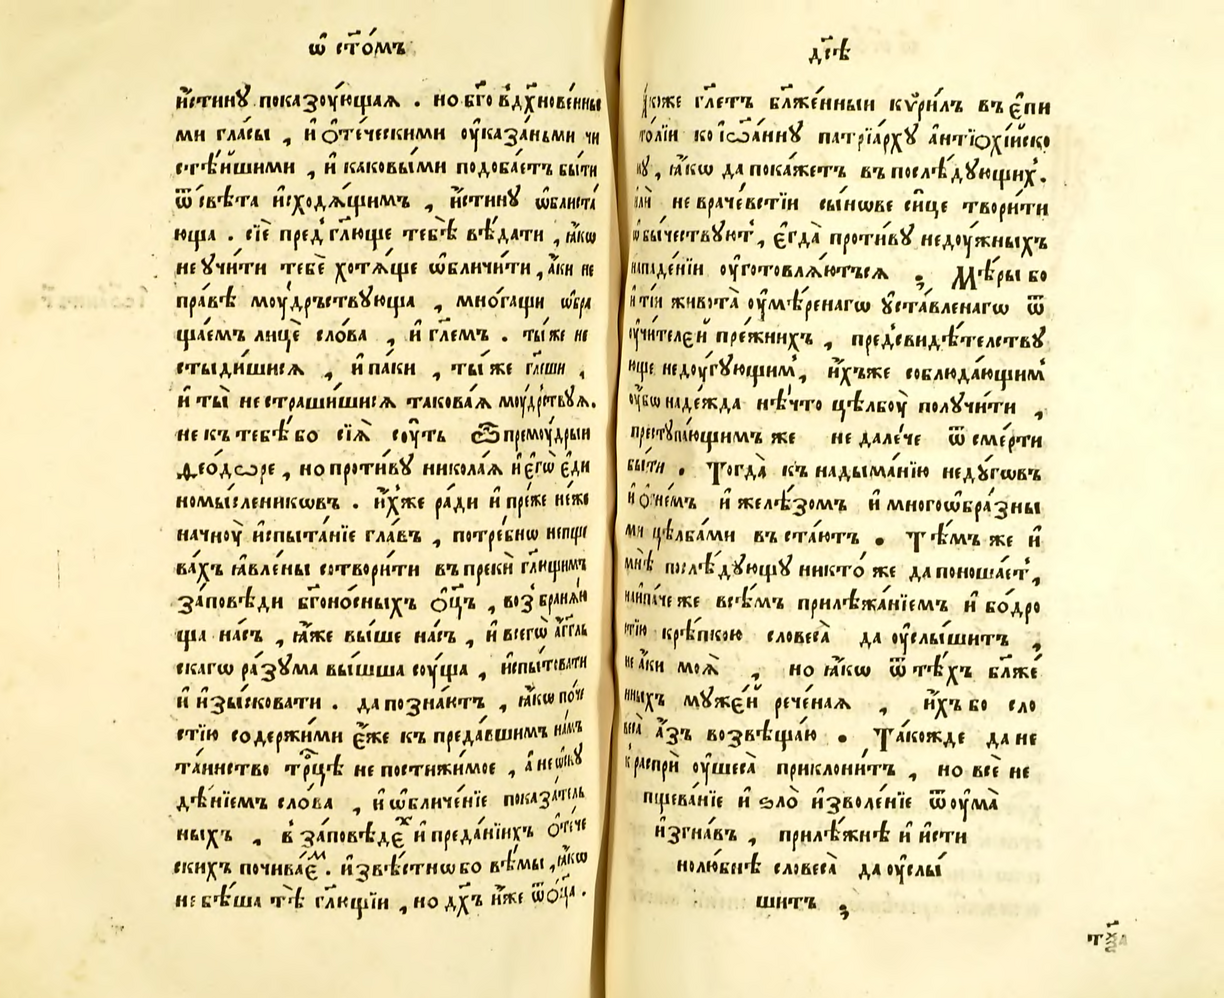 ѡ҃ ст҃о́мъ
и҆́стинꙋ показоу́ющаѧ . но бг҃о вдх҃нове́нны
ми гла́сы , и҆ ѻ҆те́ческими оу҆каза́ньми чи
стѣ́йшими , и҆ каковы́ми подоба́етъ бы́ти
ѿ свѣ́та и҆сходѧ́щимъ , и҆́стинꙋ ѡ҆блиста́
юща . сїѐ пред̾ гл҃юще тебѣ̀ вѣ́дати , ꙗ҆́кѡ
не учи́ти тебѐ хотѧ́ще ѡ҆бличи́ти , а҆́ки не
пра́вѣ моу́дръствꙋюща , мно́гащи ѡ҆бра
ща́емъ лицѐ сло́ва , и҆ гл҃емъ . ты́ же не
стыди́шисѧ , и҆ па́ки , ты́ же гл҃еши ,
и҆ ты̀ не страши́шисѧ такова́ѧ моу́дрствꙋѧ.
не къ тебѣ́ бо сїѧ̀ соу́ть ѽ премоу́дрыи
ѳео́дѡре , но проти́вꙋ никола́ѧ и҆ є҆гѡ̀ є҆ди
номы́слениковъ . и҆́хже ра́ди и҆ пре́же не́же
начноу̀ и҆спыта́нїе гла́въ , потре́бнѡ непще
ва́хъ ꙗ҆вле́ны сотвори́ти въпрекѝ гл҃ющимъ
за́повѣди бг҃оно́сныхъ ѻ҆ц҃ъ , воз̾бранѧ́ю
ща на́съ , ꙗ҆́же вы́ше на́съ , и҆ всегѡ̀ а҆́гг҃ль
скагѡ ра́зума вы́шша соу́ща , и҆спы́товати
и҆ и҆зы́сковати . да позна́ютъ , ꙗ҆́кѡ по́че
стїю содержи́ми є҆́же къ преда́вшимъ на́мъ
та́инство трⷪ҇цѣ не постижи́мое , а҆ не ѡ҆скꙋ
дѣ́нїемъ сло́ва , и҆ ѡ҆бличе́нїе показа́тель
ныхъ , в̾ за́повѣдеⷯ и҆ преда́нїихъ ѻ҆те́че
скихъ почива́еⷨ . и҆звѣ́стнѡ бо вѣ́мы , ꙗ҆́кѡ
не бѣ́ша тѣ̀ гл҃ющїи , но дх҃ъ и҆́же ѿ ѻ҆ц҃а̀ .
дс҃ѣ
ꙗ҆́коже гл҃етъ бл҃же́нныи кѷри́лъ въ є҆пи
то́лїи ко і҆ѡа́ннꙋ патрїа́рхꙋ а҆нтїѻхі́йско
мꙋ , ꙗ҆́кѡ да пока́жетъ въ послѣ́дꙋющих̾.
и҆лѝ не враче́встїи сы́нове си́це твори́ти
ѡ҆бы́чествꙋют̾, є҆гда̀ проти́вꙋ недоу́жныхъ
нападе́нїи оу҆готовлѧ́ютьсѧ ; Мѣ́ры бо
и҆ тїи живота̀ оу҆мѣ́ренагѡ ꙋ҆ста́вленагѡ ѿ
оу҆чителе́й пре́жнихъ , пред̾свидѣ́телствꙋ
юще недоу́гꙋющим̾, и҆́хъже соблюда́ющим̾
оу҆́бѡ наде́жда нѣ́что цѣлбоу̀ получи́ти ,
преступа́ющимъ же не дале́че ѿ сме́рти
бы́ти . Тогда̀ къ надыма́нїю недꙋ́говъ
и҆ ѻ҆гне́мъ и҆ желѣ́зомъ и҆ многоѡ҆бра́зны
ми цѣлба́ми въ ста́ютъ . Тѣ́мъ же и҆
мнѣ̀ послѣ́дꙋющꙋ никто́ же да поноша́ет̾,
наипа́че же всѣ́мъ прилѣжа́нїемъ и҆ бо́дро
стїю крѣ́пкою словеса̀ да оу҆слы́шитъ ,
не а҆́ки моѧ̀ , но ꙗ҆́кѡ ѿ тѣ́хъ бл҃же́
нныхъ муже́й рече́наѧ , и҆́хъ бо сло
веса̀ а҆́зъ возвѣща́ю . Та́кожде да не
к̾ распрѝ оу҆шеса̀ приклони́тъ , но всѐ не
пщева́нїе и҆ ѕло̀ и҆зволе́нїе ѿ оу҆ма̀
и҆згна́въ , приле́жнѣ и҆ и҆сти
нолю́бнѣ словеса̀ да оу҆слы́
шитъ ;